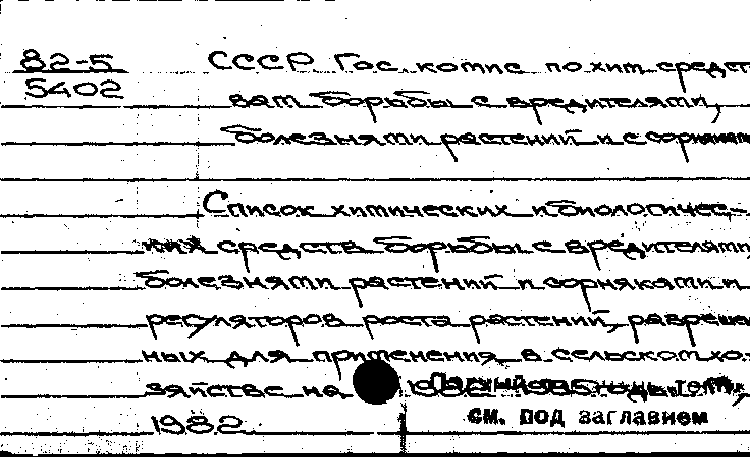 82-5 СССР Гос. комис по хим. средст
5402 вам борьбы с вредителями,
болезнями растений и с сорняками
Список химических и биологичес-
ких средств борьбы с вредителями,
болезнями растений и сорняками и
регуляторов роста растений, разрешен
ных для применения в сельском хо-
зяйстве на 1982-1985 годы
1982
см. под заглавием